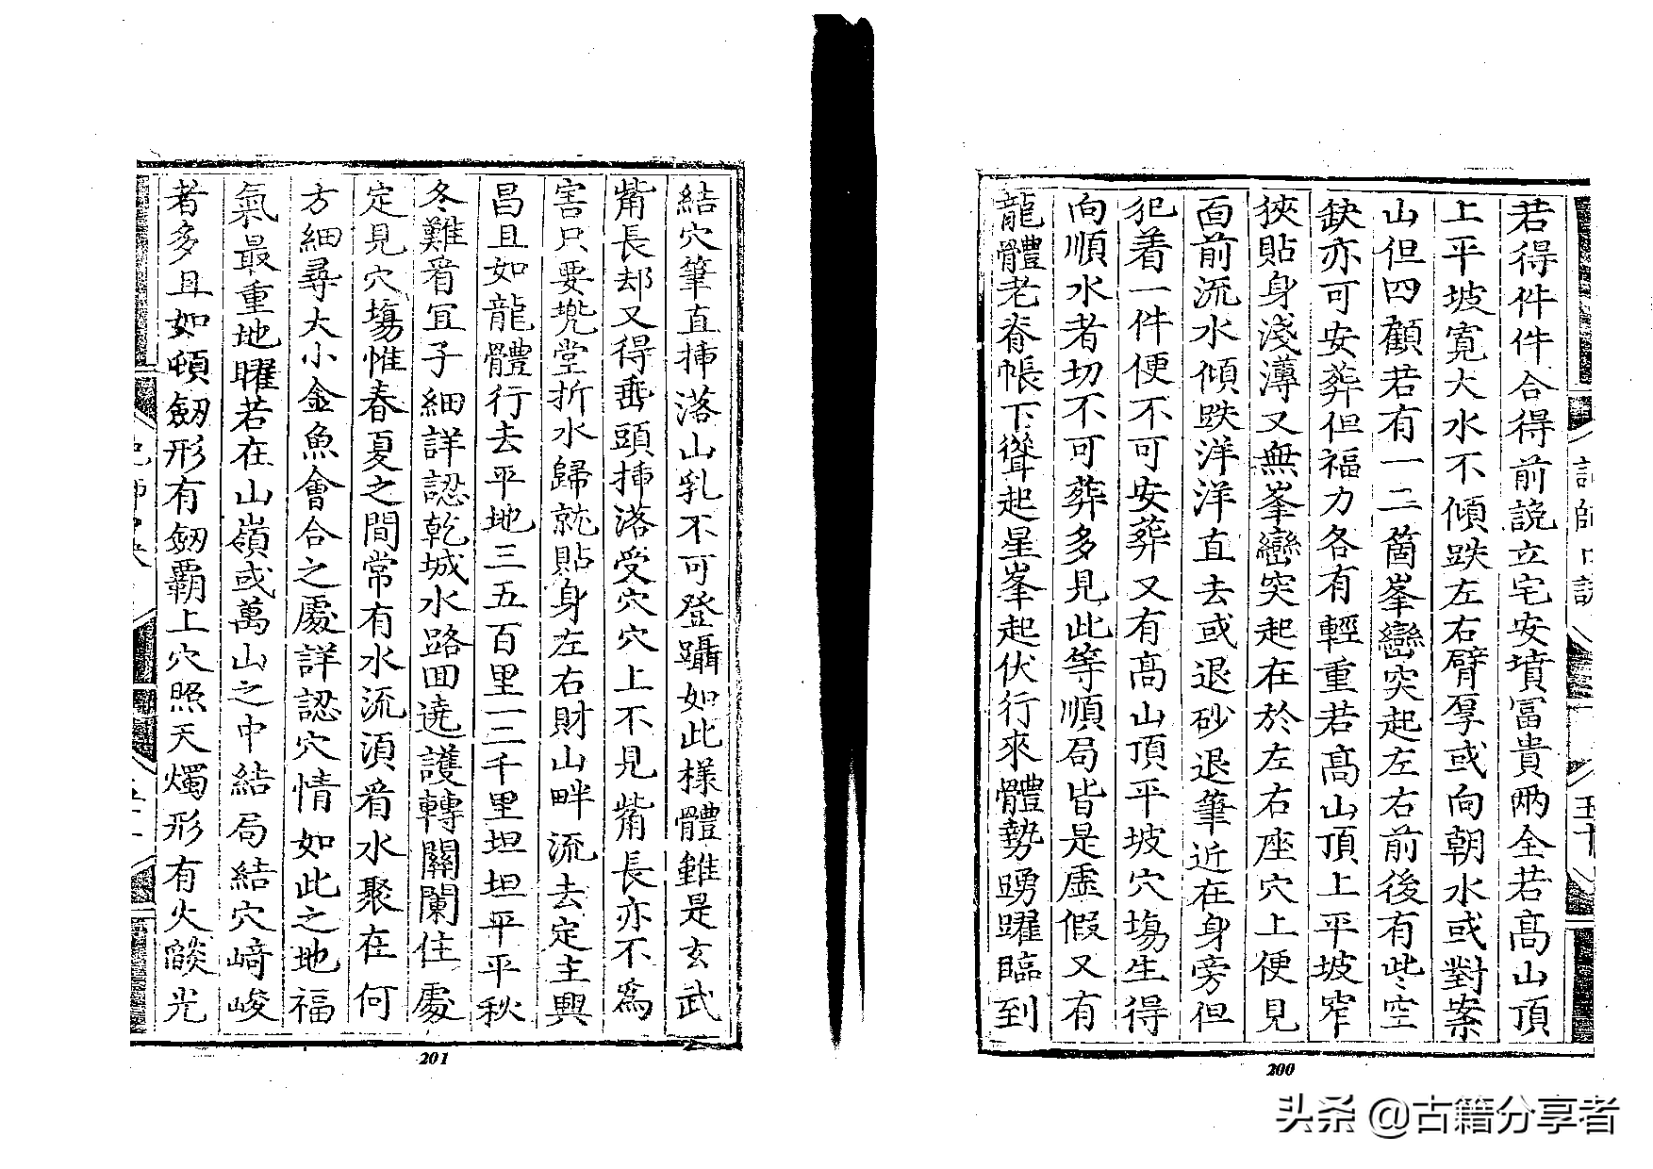 若得件件合得前說立宅安墳冨貴兩全若高山頂
上平坡寛大水不傾跌左右臂厚或向朝水或對案
山但四顧若有一二箇峯巒突起左右前後有些空
缺亦可安葬但福力各有輕重若高山頂上平坡窄
狹貼身淺薄又無峯巒突起在於左右座穴上便見
面前流水傾跌洋洋直去或退砂退筆近在身旁但
犯着一件便不可安葬又有高山頂平坡穴塲生得
向順水者切不可葬多見此等順局皆是虛假又有
龍體老脊帳下聳起星峯起伏行來體勢踴躍臨到
五十
200
結穴筆直揷落山乳不可登躡如此樣體雖是玄武
觜長却又得垂頭揷落受穴穴上不見觜長亦不爲
害只要兠堂折水歸就貼身左右財山畔流去定主興
昌且如龍體行去平地三五百里一二千里坦坦平平秋
冬難看冝子細詳認乾城水路囬遶護轉關闌住處
定見穴塲惟春夏之間常有水流湏看水聚在何
方細尋大小金魚會合之處詳認穴情如此之地福
氣最重地曜若在山嶺或萬山之中結局結穴﨑峻
者多且如頓劒形有劒覇上穴照天燭形有火燄光
201
头条 @古籍分享者